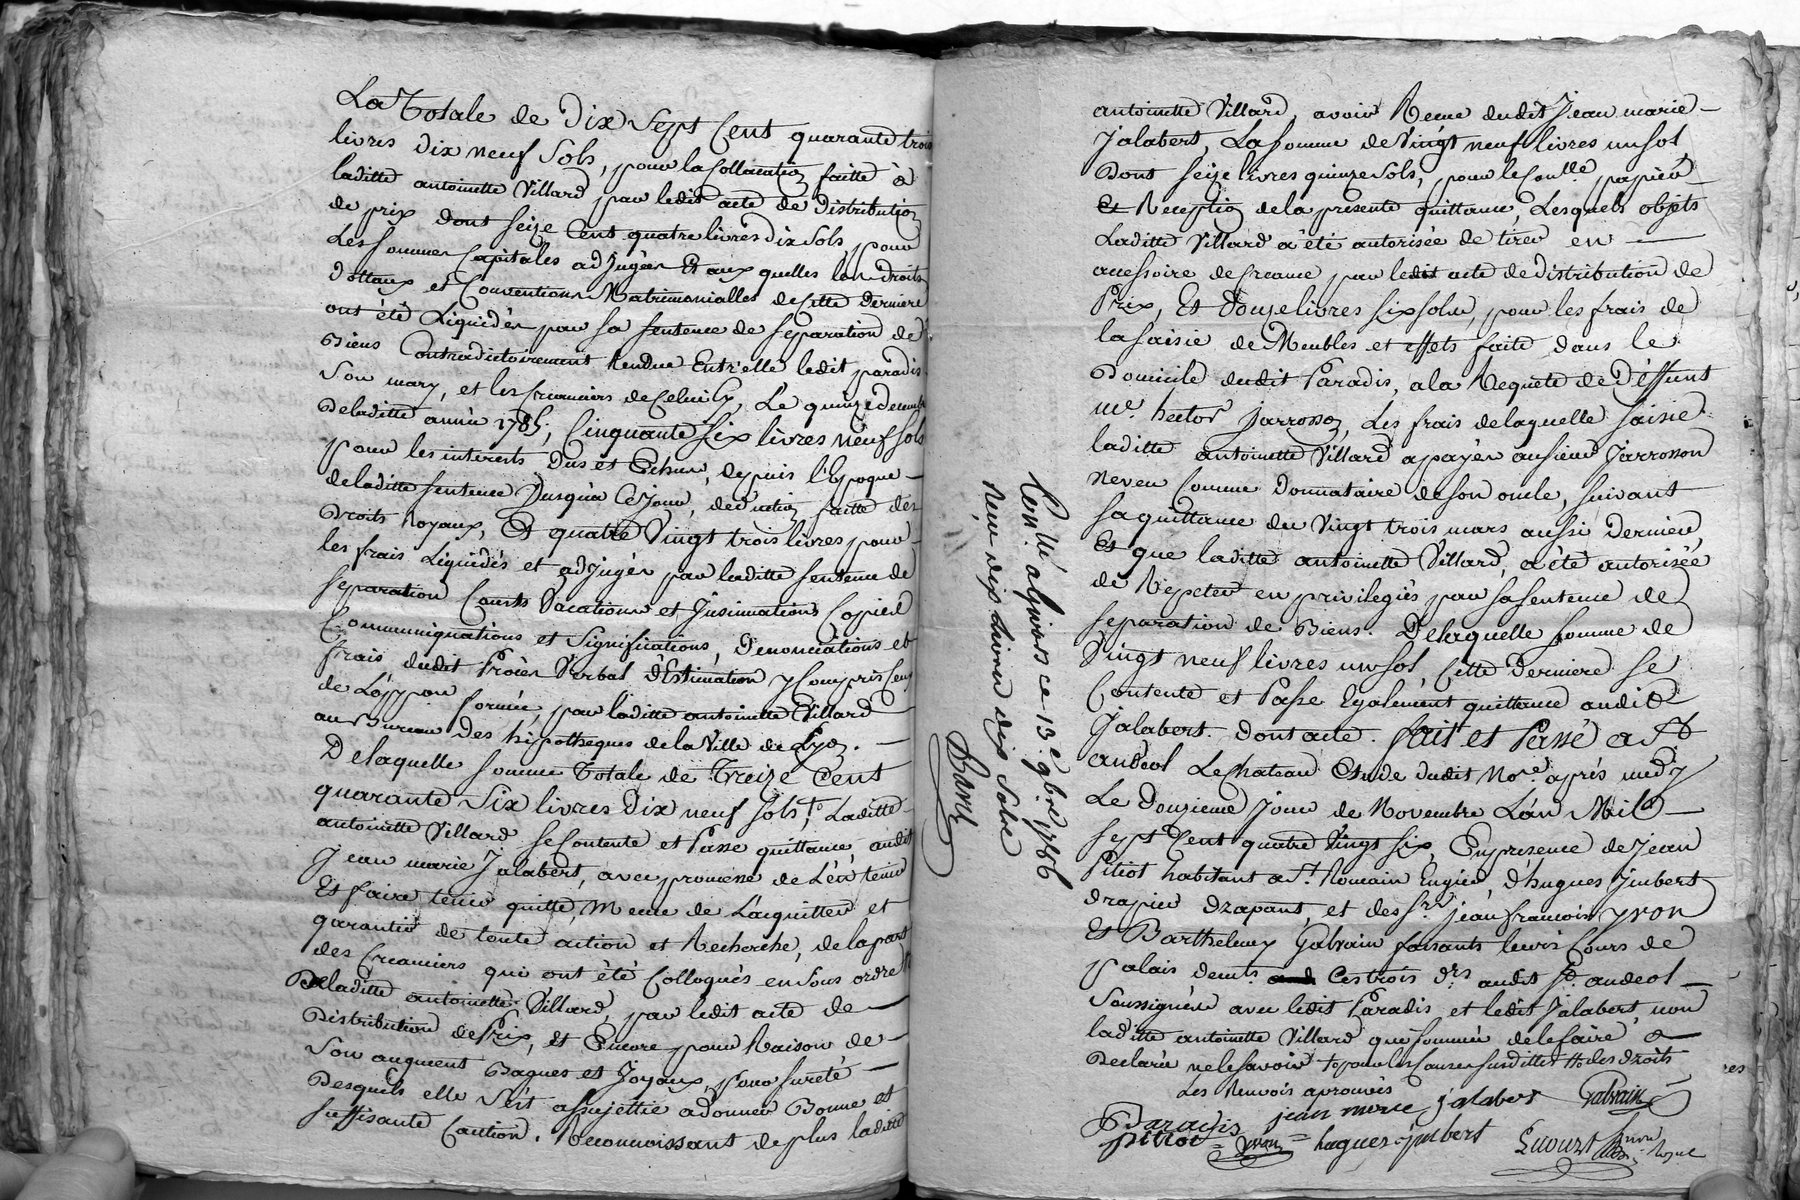 La Totale de Dix Sept Cent quarante trois
livres dix neuf Sols, pour la Collocation faitte à
laditte antoinette Villard par ledit acte de Distribution
de prix dont seize Cent quatre livres dix Sols pour
Les sommes Capitales adjugées Et aux quelles les droits
dottaux et Conventions Matrimonialles de cette derniere
ont été Liquidés par sa sentence de separation de
Biens Contradictoirement Rendue Entr'elle ledit paradis
son mary, et les Creanciers de Celui Cy, Le quinze decembre
De laditte année 1785, Cinquante six livres neuf sols
pour les interets Dus et Echus, depuis l'Epoque
de laditte sentence Jusqu'a Ce jour, deduction faitte des
Droits Royaux, Et quatre Vingt trois livres pour
les frais Liquidés et adjugés par laditte sentence de
separation Courts Vacations et Insinuations Copies
Communiquations et Significations, Denonciations et
frais dudit Procès Verbal d'Estimation y Compris Ceux
de L'oppon formée, par laditte antoinette Villard
au Bureau des hipotheques de la Ville de Lyon.
De laquelle somme Totale de Treize Cent
quarante Six livres Dix neuf sols, Laditte
antoinette Villard se Contente et Passe quittance audit
Jean marie Jalabert, avec promesse de L'en tenir
Et faire tenir quitte, Meme de L'acquitter et
garantir de toute action et Recherche, de la part
des Creanciers qui ont été Colloqués en sous ordre
De laditte antoinette Villard, par ledit acte de
Distribution de Prix, et Encore pour Raison de
Son augment Bagues et Joyaux, pour sureté
Desquels elle s'est assujettie a donner Bonne et
suffisante Caution. Reconnoissant de plus laditte
antoinette Villard, avoir Receu dudit Jean marie
Jalabert, La somme de Vingt neuf livres un sol,
Dont seize livres quinze sols, pour le Conlle papier
Et Reception de la presente quittance, Lesquels objets
Laditte Villard a été autorisée de tirer en
accessoire de Creance par ledit acte de distribution de
Prix, Et Douze livres six sols, pour les frais de
la saisie de Meubles et effets faite dans le
Domicile dudit Paradis, a la Requete de Deffunt
me. hector Jarrosson, Les frais de laquelle saisie
laditte antoinette Villard a payés au sieur Jarrosson
neveu Comme Donnataire de son oncle, suivant
sa quittance du Vingt trois mars aussi dernier,
Et que laditte antoinette Villard, a été autorisée
de Repeter en privilegiés par sa sentence de
separation de Biens. De laquelle somme de
Vingt neuf livres un sol, Cette derniere se
Contente et Passe Egalement quittance audit
Jalabert. dont acte. fait et Passé a St
andeol Le chateau Etude dudit Nore. après midy
Le Douzieme Jour de Novembre L'an Mil
sept Cent quatre Vingt six, En presence de Jean
Pitiot habitant a St. Romain Engier, d'hugues Jmbert
drapier drapant, et des srs. jean francois yvon
Et Barthelemy Galvain faisants leurs Cours de
Palais demts. Ces trois drs audit St. andeol
Soussignés avec ledit Paradis et ledit Jalabert, non
laditte antoinette Villard qui sommée de le faire a
Declaré ne le savoir to pour les Causes susdittes # des droits
Les Renvois aprouvés
Paradis jean marie Jalabert Galvain
pitiot yvon hugues jmbert
Conllé a givors ce 13e. 9bre 1786
Reçu dix livres dix sols